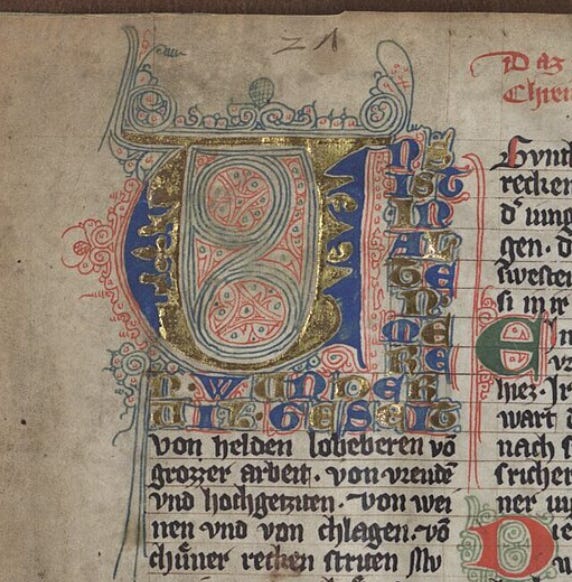 21
V NS
IST
IN
AL
TE
N
ME
RE
N. WUNDER
VIL. GESEIT
von helden lobeberen vō
grozzer arbeit. von vreudē
vnd hochgeziten. von wei
nen vnd von chlagen. vō
chůner recken striten Mv
Daz
recken
d' iung
gen. d
swester
si mir
E in
hiez. Ir
wart d
nach s
D ie